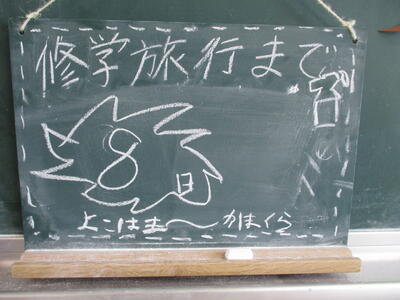 修学旅行まで
8日
よこはま〜かまくら